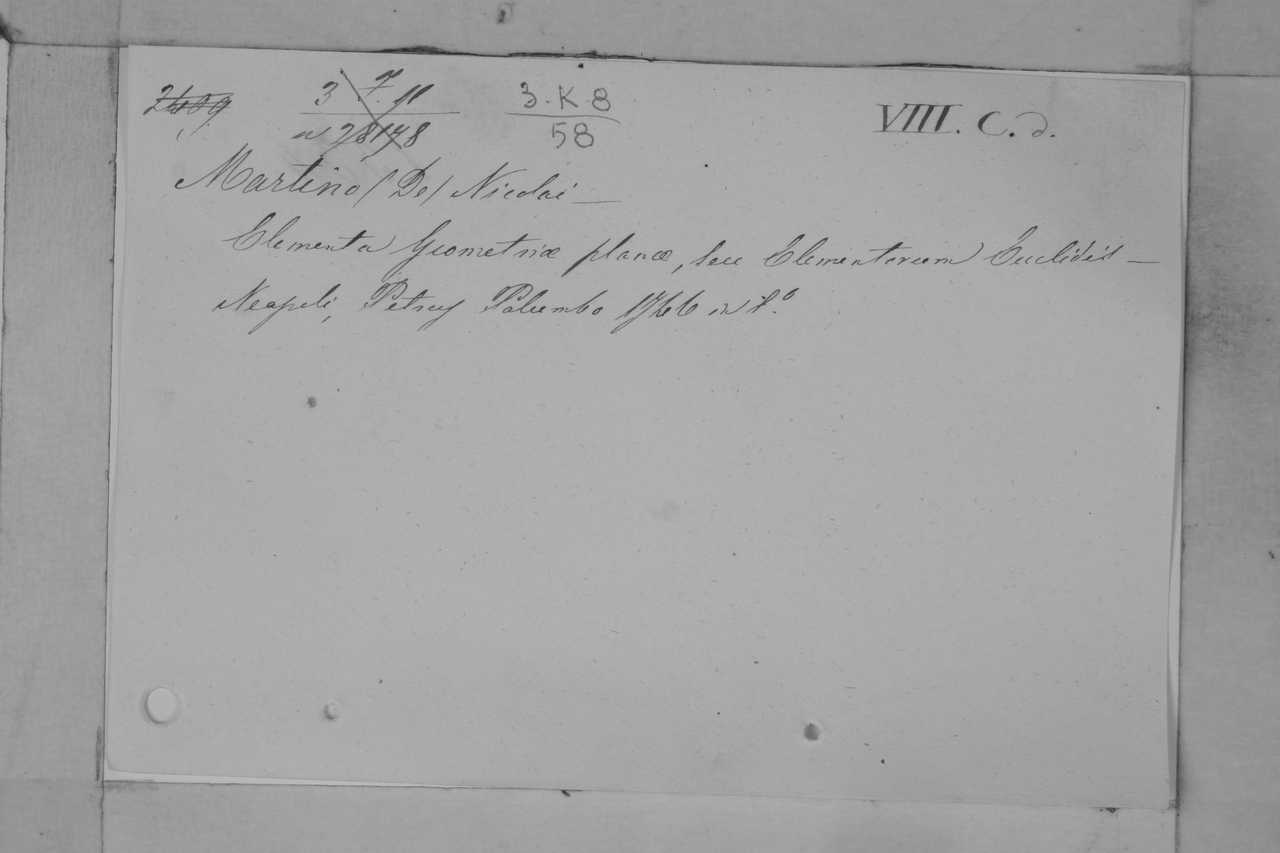 3.K.8
58
VIII. C. d.
Martino (De) Nicolai —
Elementa Geometriæ planæ, seu Elementorum Euclidis —
Neapoli, Petrus Palumbo 1766 in 8.º